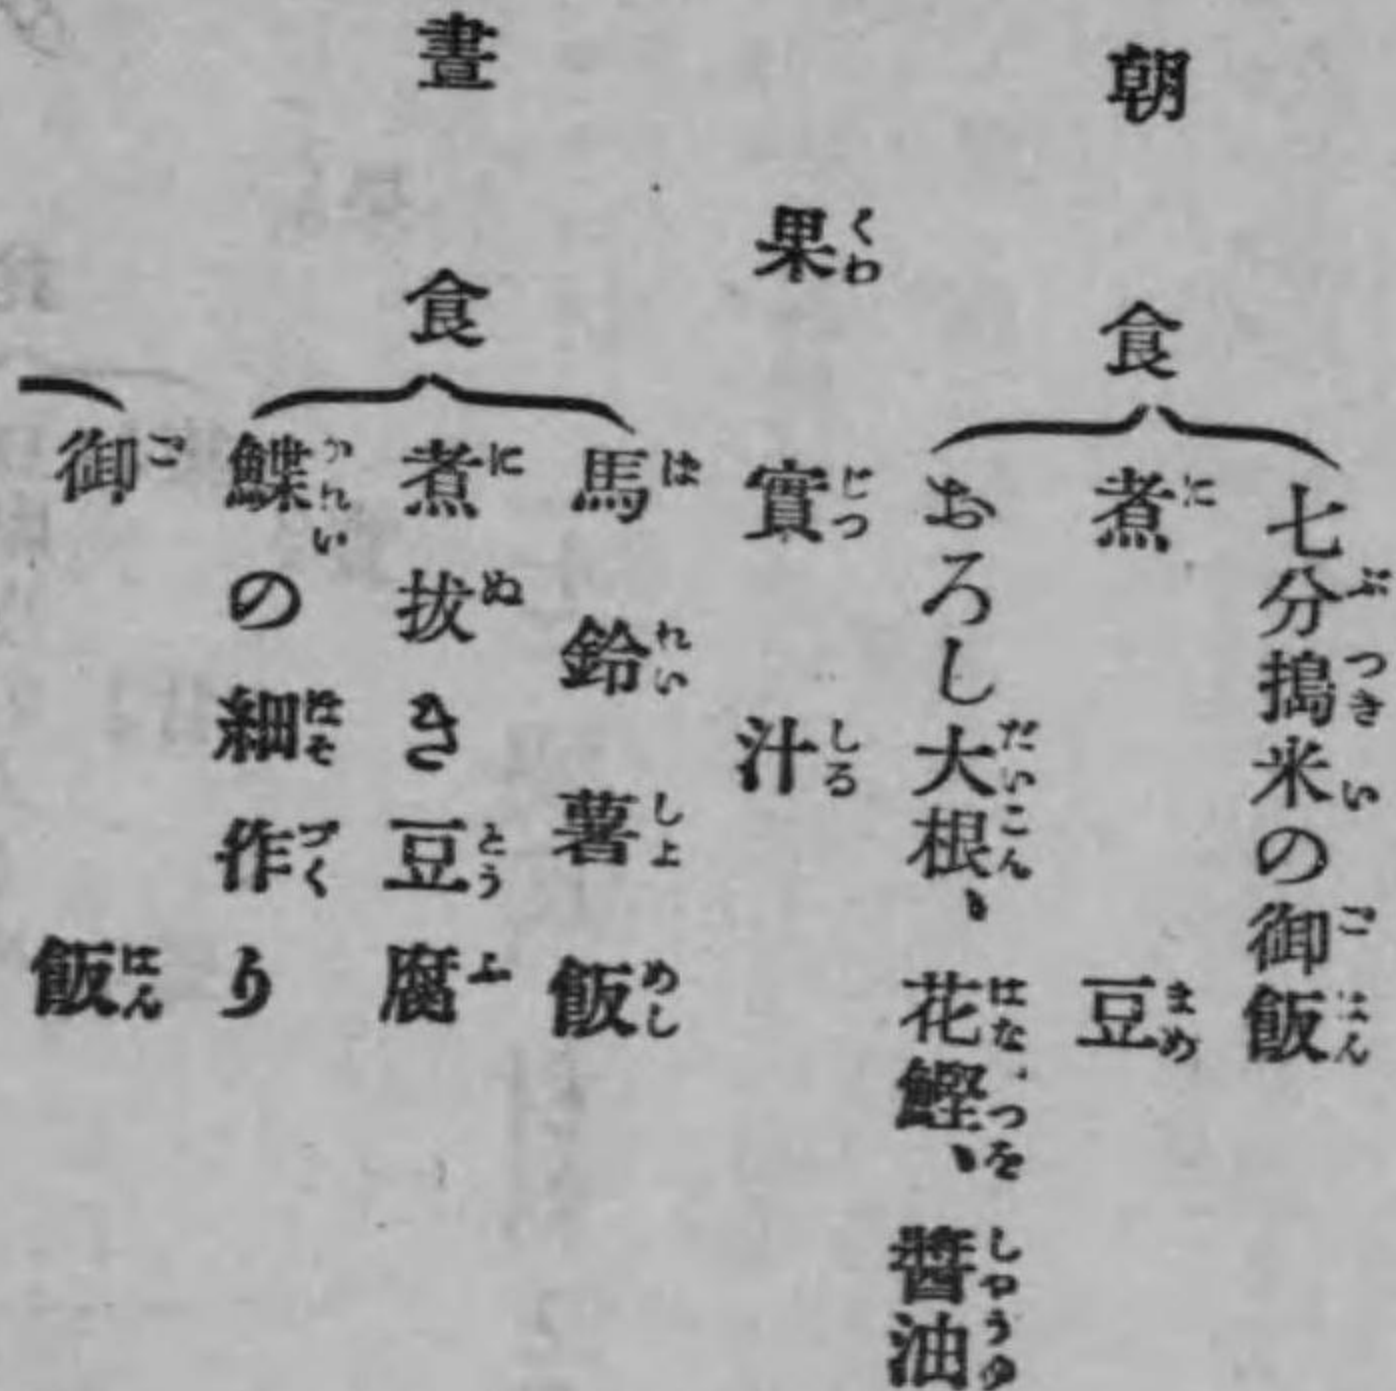 朝食
七分搗米の御飯
煮豆
おろし大根、花鰹、醬油
果實汁
晝食
馬鈴薯飯
煮拔き豆腐
鰈の細作り
御飯